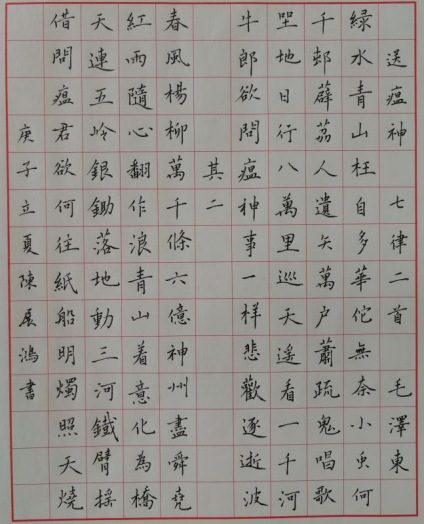 送瘟神 七律二首 毛澤東
綠水青山枉自多華佗無奈小虫何
千邨薜荔人遺矢萬户蕭疏鬼唱歌
坐地日行八萬里巡天遥看一千河
牛郎欲問瘟神事一樣悲歡逐逝波
其二
春風楊柳萬千條六億神州盡舜堯
紅雨隨心翻作浪青山着意化為橋
天連五岭銀鋤落地動三河鐵臂摇
借問瘟君欲何往紙船明燭照天燒
庚子立夏陳展鴻書